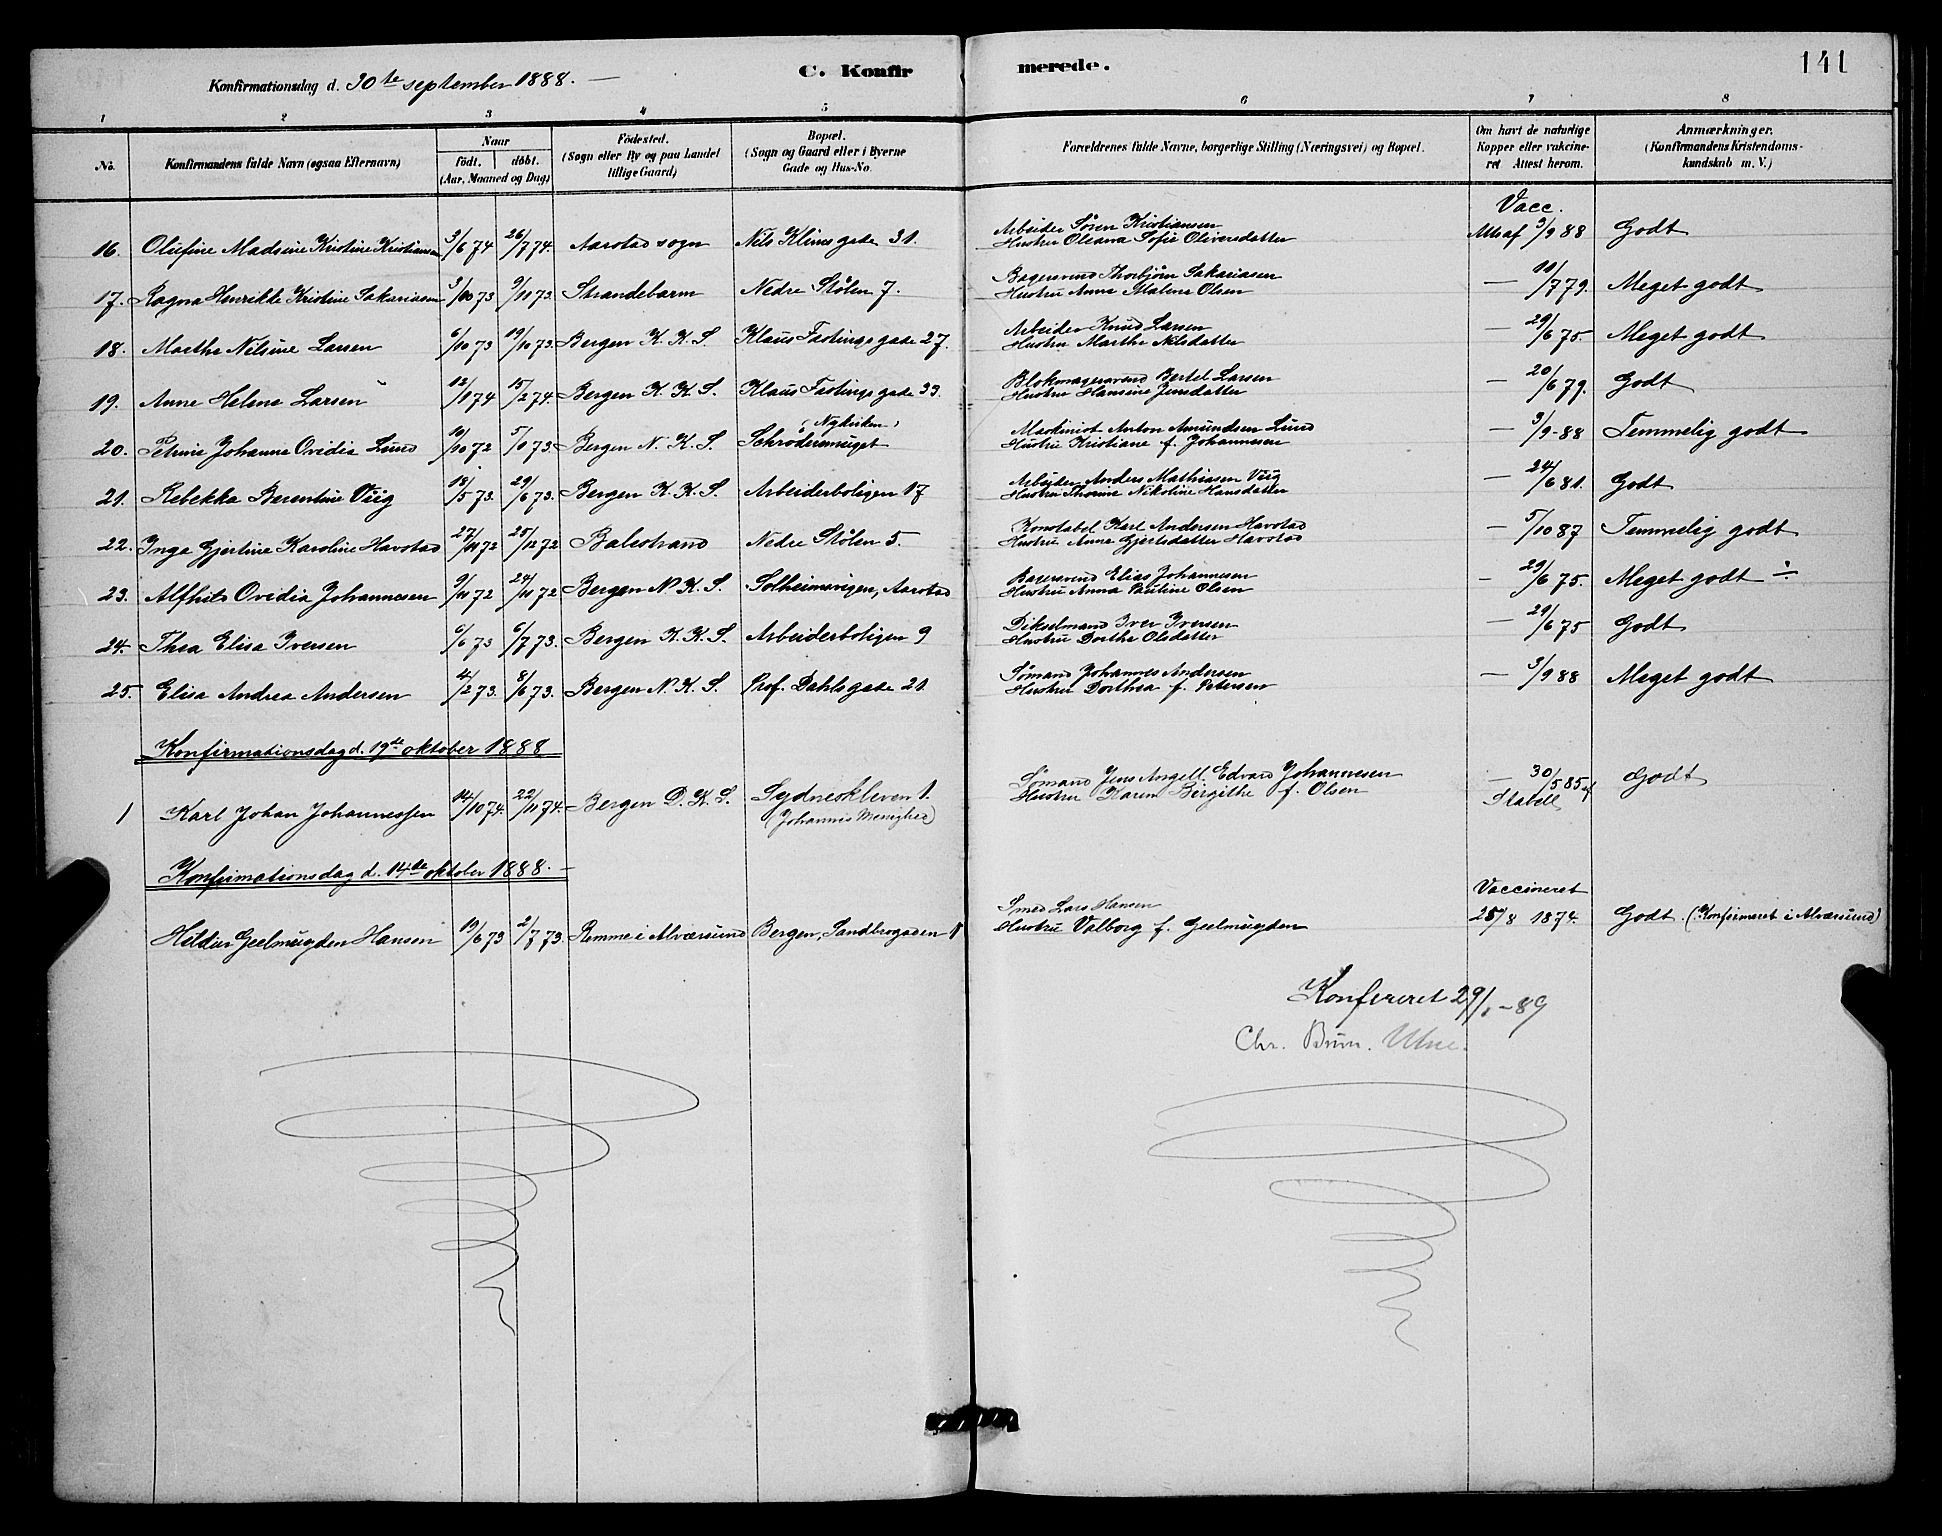 141
Konfirmationsdag d. 30te september 1888. —
C. Konfirmerede.
1 2 3 4 5 6 7 8
No. Konfirmandens fulde Navn (ogsaa Efternavn) Naar födt. döbt. (Aar, Maaned og Dag) Födested. (Sogn eller By og paa Landet tillige Gaard) Bopæl. (Sogn og Gaard eller i Byerne Gade og Hus-No. Forældrenes fulde Navne, borgerlige Stilling (Næringsvei) og Bopæl. Om havt de naturlige Kopper eller vakcineret Attest herom. Anmærkninger. (Konfirmandens Kristendomskundskab m. V.)
Vacc.
16. Olufine Madsine Kristine Kristiansen 3/6 74 26/7 74. Aarstad sogn Nils Klims gade 31. Arbeider Sören Kristiansen Hustru Oleana Sofie Oliversdatter Att. af 3/9 88 Godt
17. Ragna Henrikke Kristine Sakariasen 3/10 73 9/11 73. Strandebarm Nedre Stölen 7. Bagersvend Thorbjörn Sakariasen Hustru Anna Malene Olsen — 11/7 79. Meget godt
18. Marthe Nilsine Larsen 6/10 73 19/10 73. Bergen K. K. S. Klaus Fastings gade 27. Arbeider Knud Larsen Hustru Marthe Nilsdatter — 29/6 75. Meget godt
19. Anne Helene Larsen 12/1 74 15/2 74. Bergen K. K. S. Klaus Fastings gade 33. Blokmagersvend Bertel Larsen Hustru Hansine Jensdatter — 20/6 79. Godt
20. Petrine Johanne Ovidia Lund 10/10 72 5/1 73. Bergen N. K. S. Schrödersmuget (Nykirken) Maskinist Anton Amundsen Lund Hustru Kristiane f. Johannesen — 3/9 - 88 Temmelig godt
21. Rebekka Berentine Viig 18/5 73. 29/6 73. Bergen K. K. S. Arbeiderboligen 17 Arbeider Anders Mathiasen Viig Hustru Thorine Nikoline Hansdatter — 24/6 81. Godt
22. Inga Gjertine Karoline Havstad 27/11 72 25/12 72 Balestrand Nedre Stölen 5. Konstabel Karl Andersen Havstad Hustru Anne Gjertsdatter Havstad — 5/10 87 Temmelig godt
23. Alfhild Ovidia Johannesen 9/11 72 24/11 72 Bergen N. K. S. Solheimsvigen, Aarstad Bagersvend Elias Johannesen Hustru Anna Pauline Olsen — 29/6 75. Meget godt ÷
24. Thea Elisa Iversen 6/6 73 6/7 73. Bergen K. K. S. Arbeiderboligen 9 Dikselmand Iver Iversen Hustru Dorthe Olsdatter — 29/6 75 Godt
25. Elisa Andrea Andersen 4/2 73. 8/6 73. Bergen N. K. S. Prof. Dahls gade 21. Sömand Johannes Andersen Hustru Dorthea f. Petersen — 3/9 88 Meget godt
Konfirmationsdag d. 19de oktober 1888
1 Karl Johan Johannessen 14/10 74. 22/11 74. Bergen D. K. S. Sydneskleven 1. (Johannis Menighed) Sömand Jens Angell Edvard Johannesen Hustru Karen Birgithe f. Olsen — 30/5 85 af Stabell Godt
Konfirmationsdag d. 14de oktober 1888. —
Hildur Geelmuyden Hansen 19/6 73 2/7 73. Remme i Alværsund Bergen, Sandbrogaden Smed Lars Hansen Hustru Valborg f. Geelmuyden Vaccineret 25/8 1874. Godt. (Konfirmeret i Alværsund)
Konfereret 29/1 - 89
Chr. Bruun. Ulne.